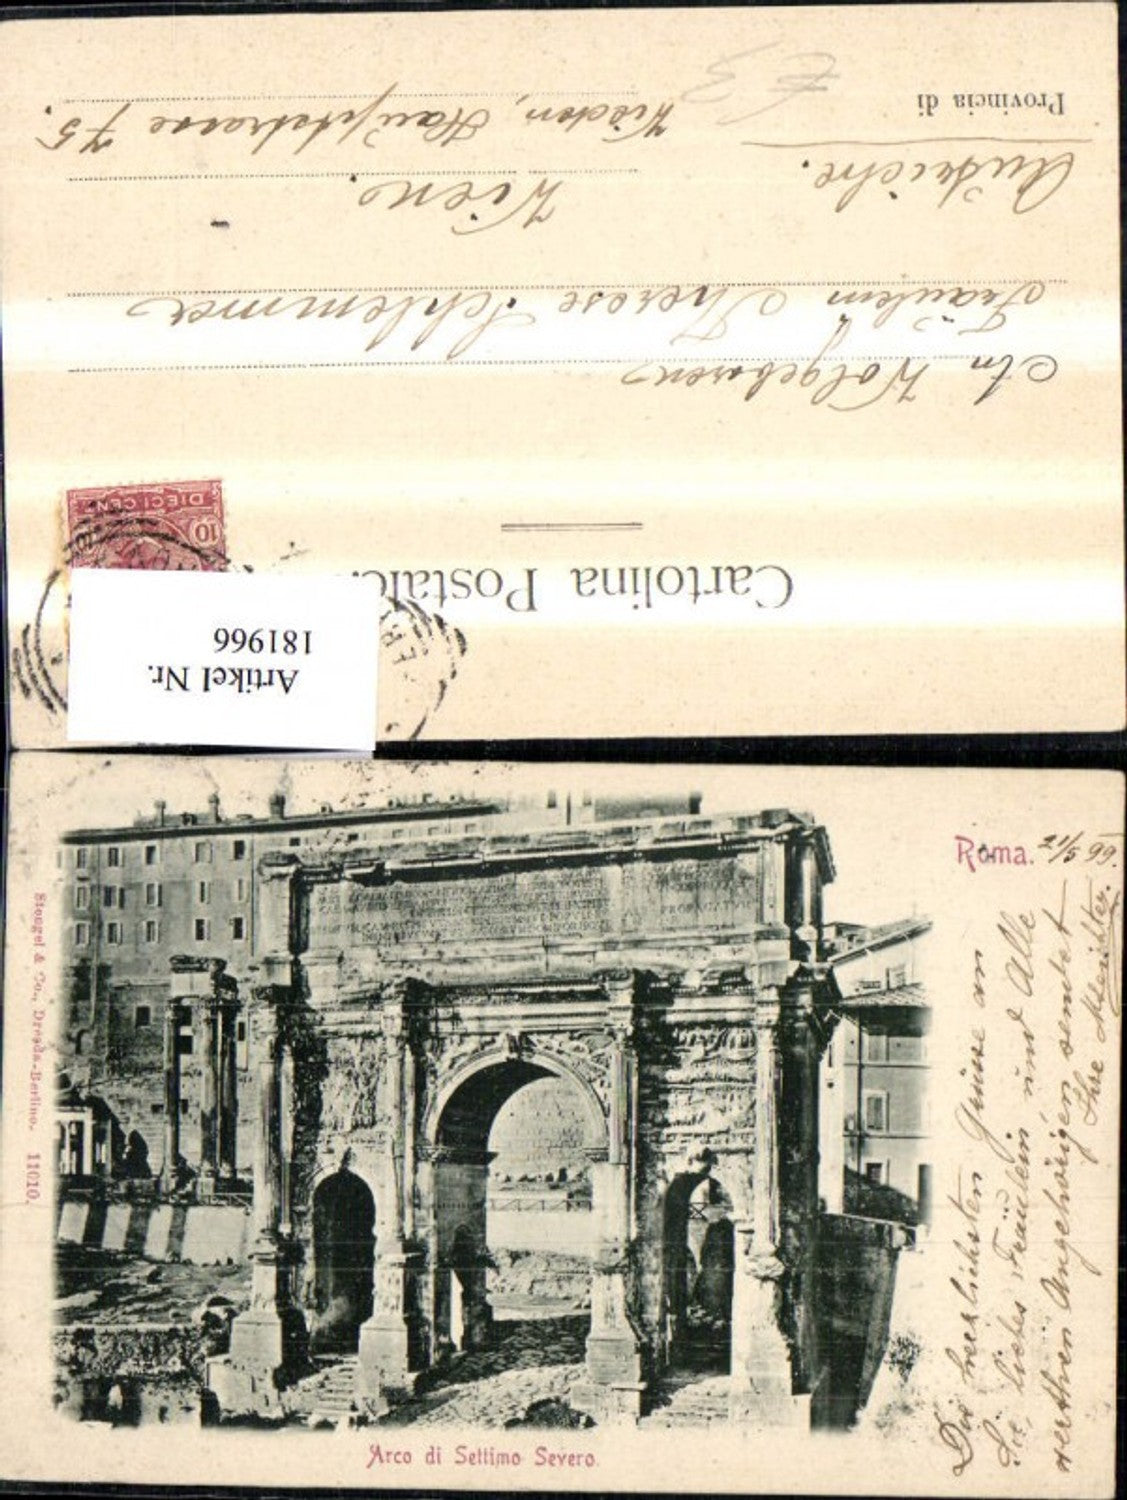 Cartolina Postale.
DIECI CENT
10
Artikel Nr.
181966
An Wolgeboren
Fräulein Therese Schlemmer
Wien.
Wieden, Hauptstrasse 75.
Austriche.
Provincia di
€ 3
Roma. 21/5 99.
Die herzlichsten Grüsse an
Sie, liebes Fräulein und Alle
werthen Angehörigen sendet
Ihre
Arco di Settimo Severo.
Stengel & Co., Dresda-Berlino. 11010.